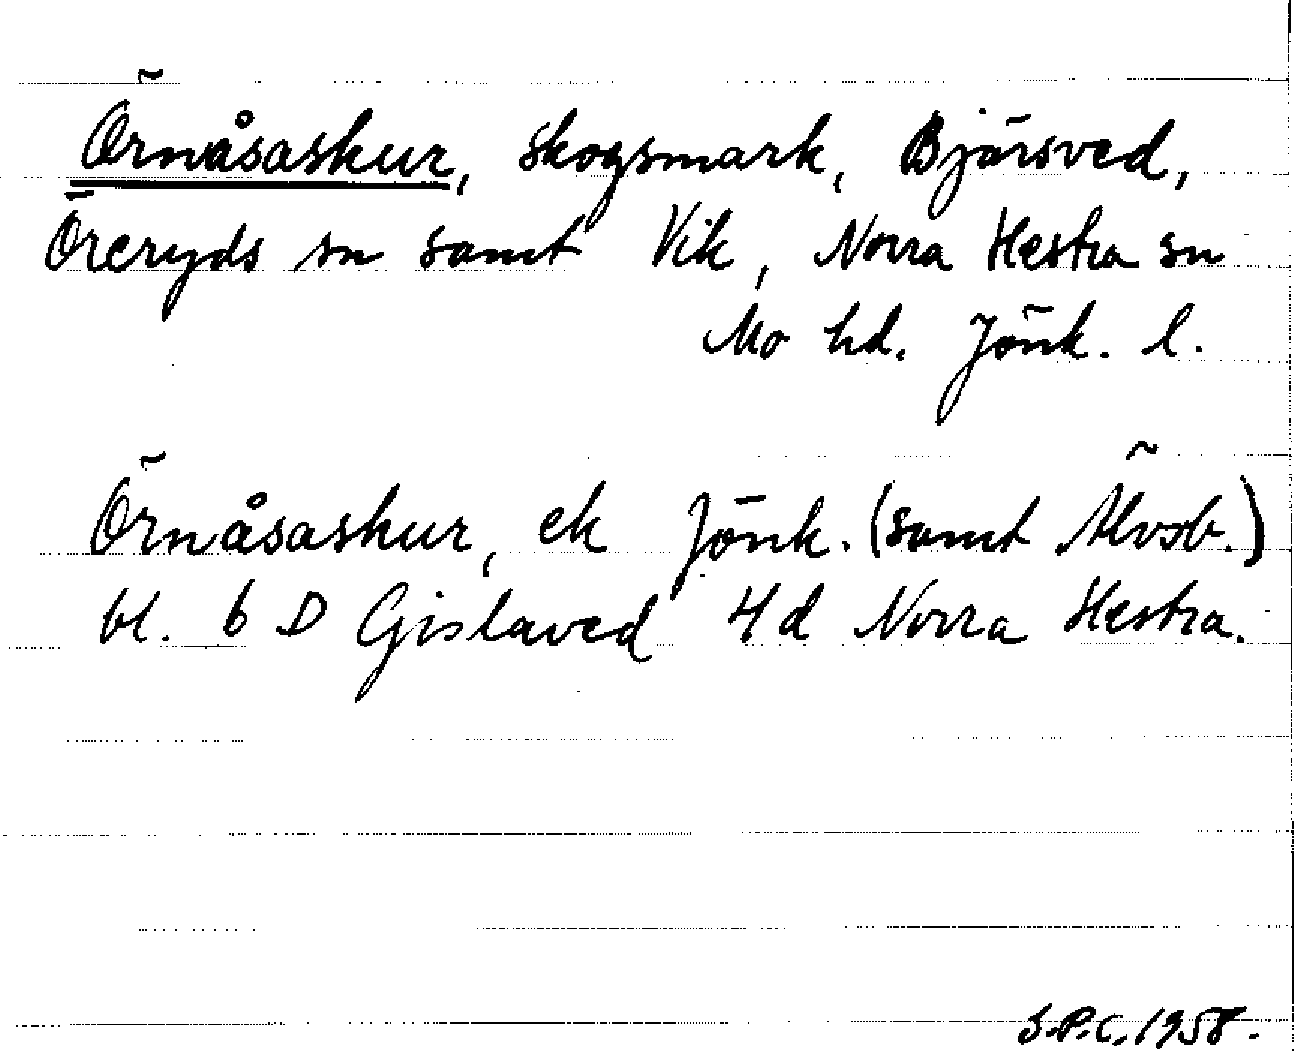 Örnåsaskur, skogsmark, Bjärsved,
Öreryds sn samt Vik, Norra Hestra sn
Mo hd. Jönk. l.
Örnåsaskur, ek Jönk. (samt Älvsb.)
bl. 6 D Gislaved 4d Norra Hestra.
S.P.C. 1958.